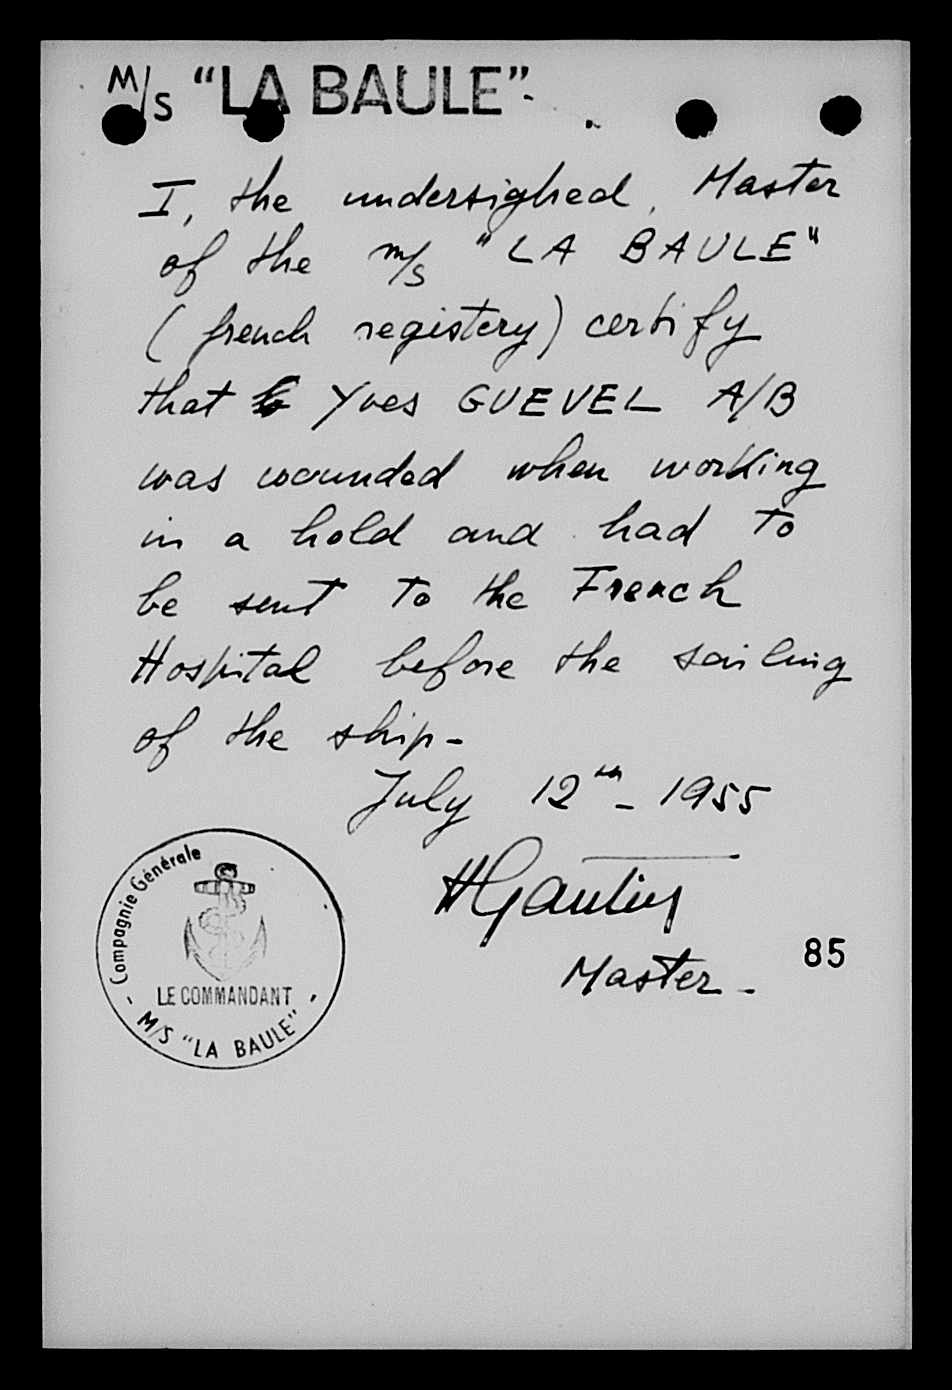 M/S "LA BAULE"-
I, the undersighed, Master
of the m/s "LA BAULE"
(french registery) certify
that Yves GUEVEL A/B
was wounded when working
in a hold and had to
be sent to the French
Hospital before the sailing
of the ship-
July 12th - 1955
HGautier
Master -
85
Compagnie Générale
LE COMMANDANT
- M/S "LA BAULE" -